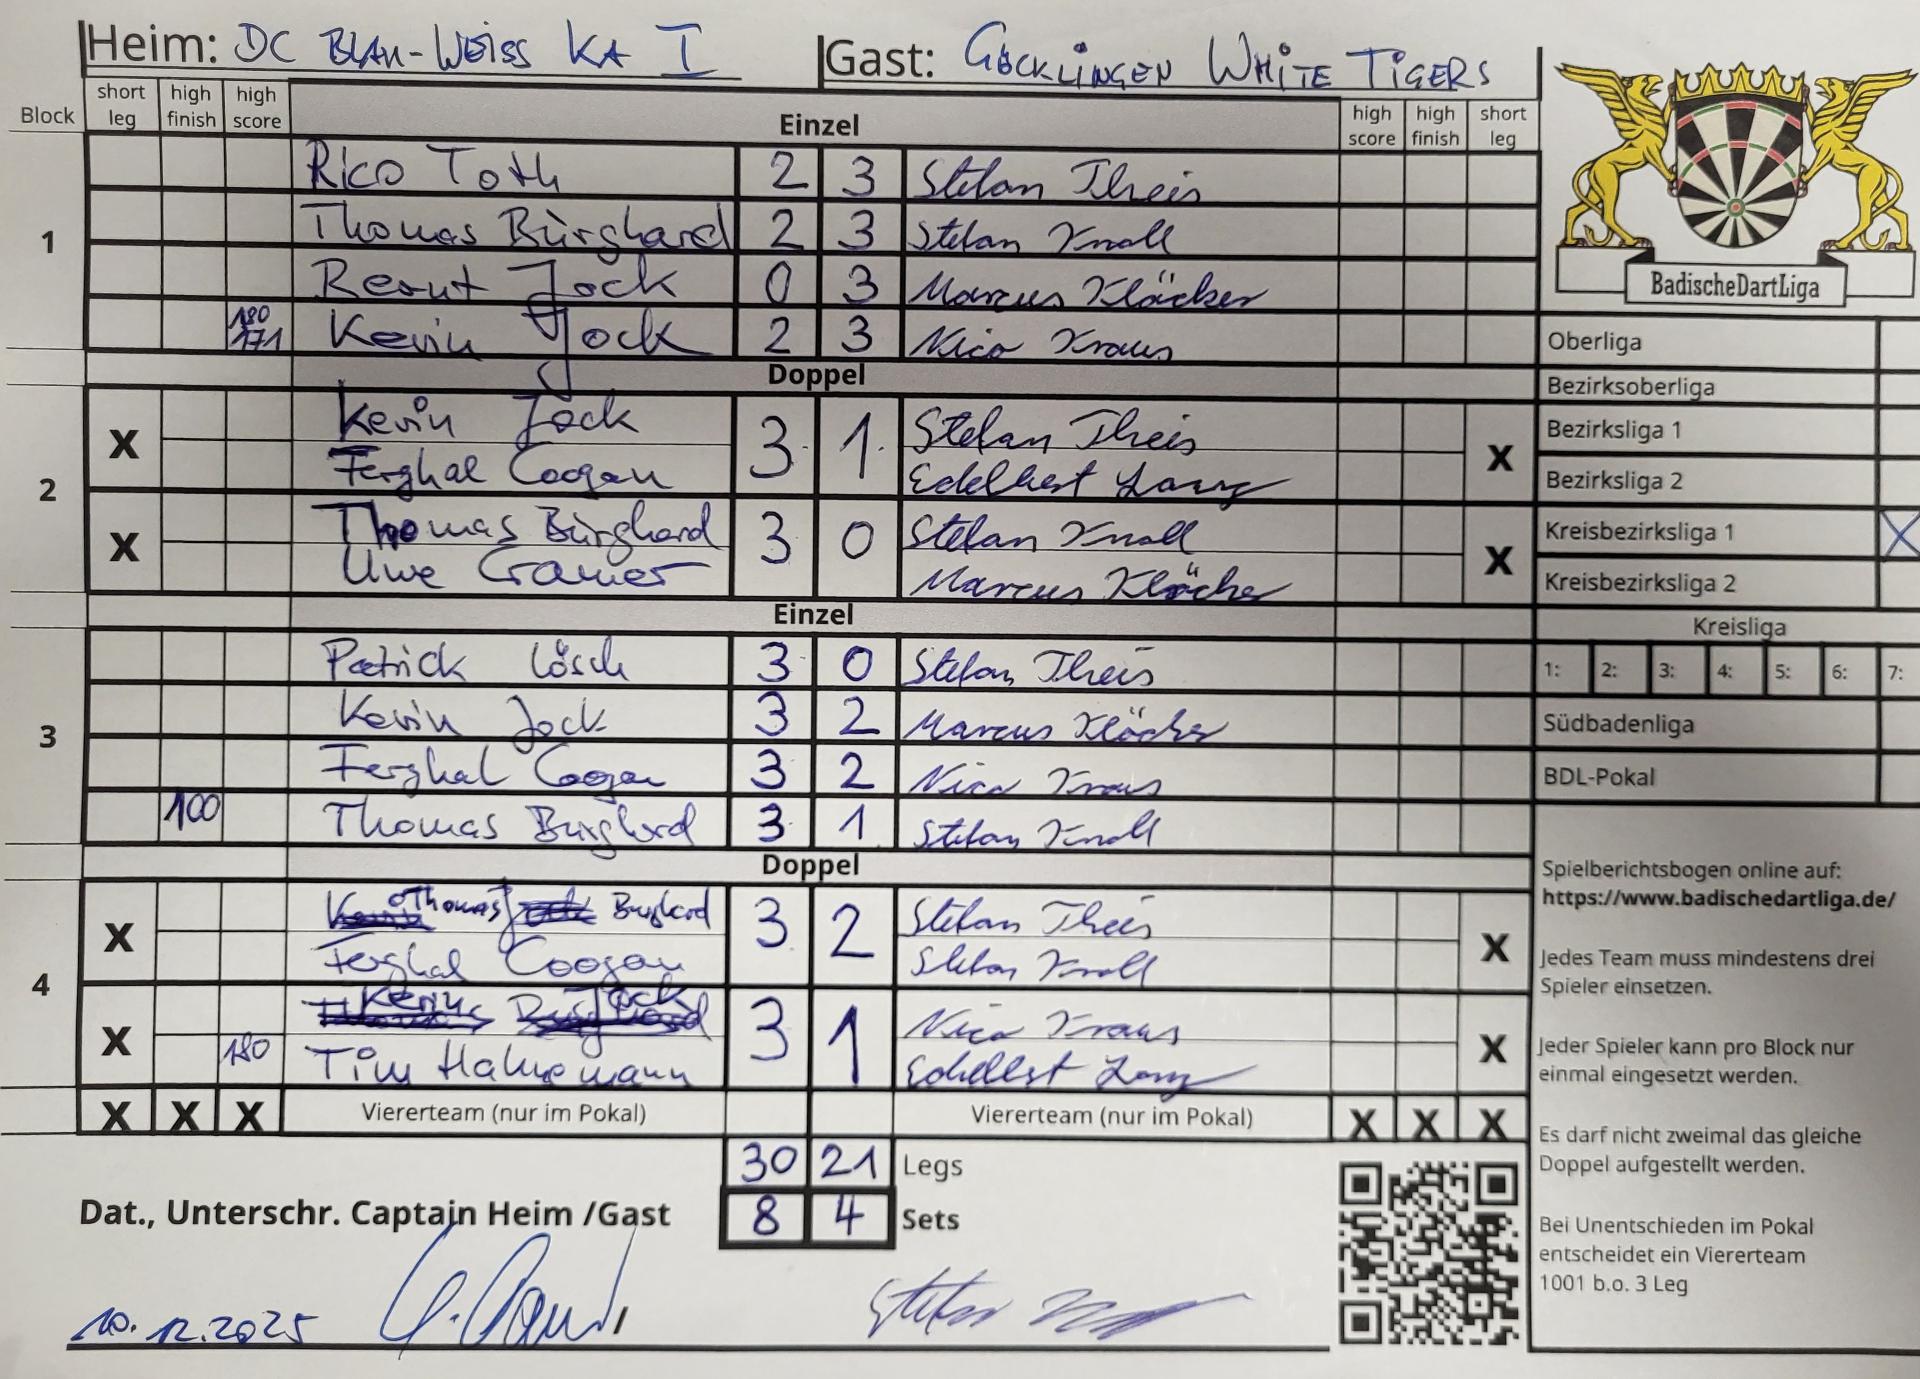 Heim: DC BLAU-WEISS KA I Gast: GÖCKLINGEN WHITE TIGERS
Block short leg high finish high score Einzel high score high finish short leg
1
Rico Toth 2 3 Stefan Theis
Thomas Bürghard 2 3 Stefan Knoll
Bernt Jock 0 3 Marcus Kläcker
180 171 Kevin Jock 2 3 Nico Kraus
Doppel
2
X Kevin Jock 3 1 Stefan Theis X
Ferghal Coogan Edelbert Lang
X Thomas Bürghard 3 0 Stefan Knoll X
Uwe Cramer Marcus Kläcker
Einzel
3
Patrick Lösch 3 0 Stefan Theis
Kevin Jock 3 2 Marcus Kläcker
Ferghal Coogan 3 2 Nico Kraus
100 Thomas Burghard 3 1 Stefan Knoll
Doppel
4
X Thomas Burghard 3 2 Stefan Theis X
Ferghal Coogan Stefan Knoll
X Kevin Jock 3 1 Nico Kraus X
180 Tim Hahnemann Edelbert Lang
X X X Viererteam (nur im Pokal) Viererteam (nur im Pokal) X X X
30 21 Legs
8 4 Sets
Dat., Unterschr. Captain Heim /Gast
10.12.2025
BadischeDartLiga
Oberliga
Bezirksoberliga
Bezirksliga 1
Bezirksliga 2
Kreisbezirksliga 1 X
Kreisbezirksliga 2
Kreisliga
1: 2: 3: 4: 5: 6: 7:
Südbadenliga
BDL-Pokal
Spielberichtsbogen online auf:
https://www.badischedartliga.de/
Jedes Team muss mindestens drei
Spieler einsetzen.
Jeder Spieler kann pro Block nur
einmal eingesetzt werden.
Es darf nicht zweimal das gleiche
Doppel aufgestellt werden.
Bei Unentschieden im Pokal
entscheidet ein Viererteam
1001 b.o. 3 Leg